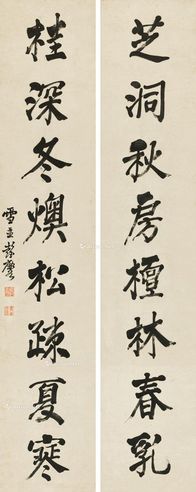 芝洞秋房檀林春乳
桂深冬燠松疎夏寒
雪立彭麐